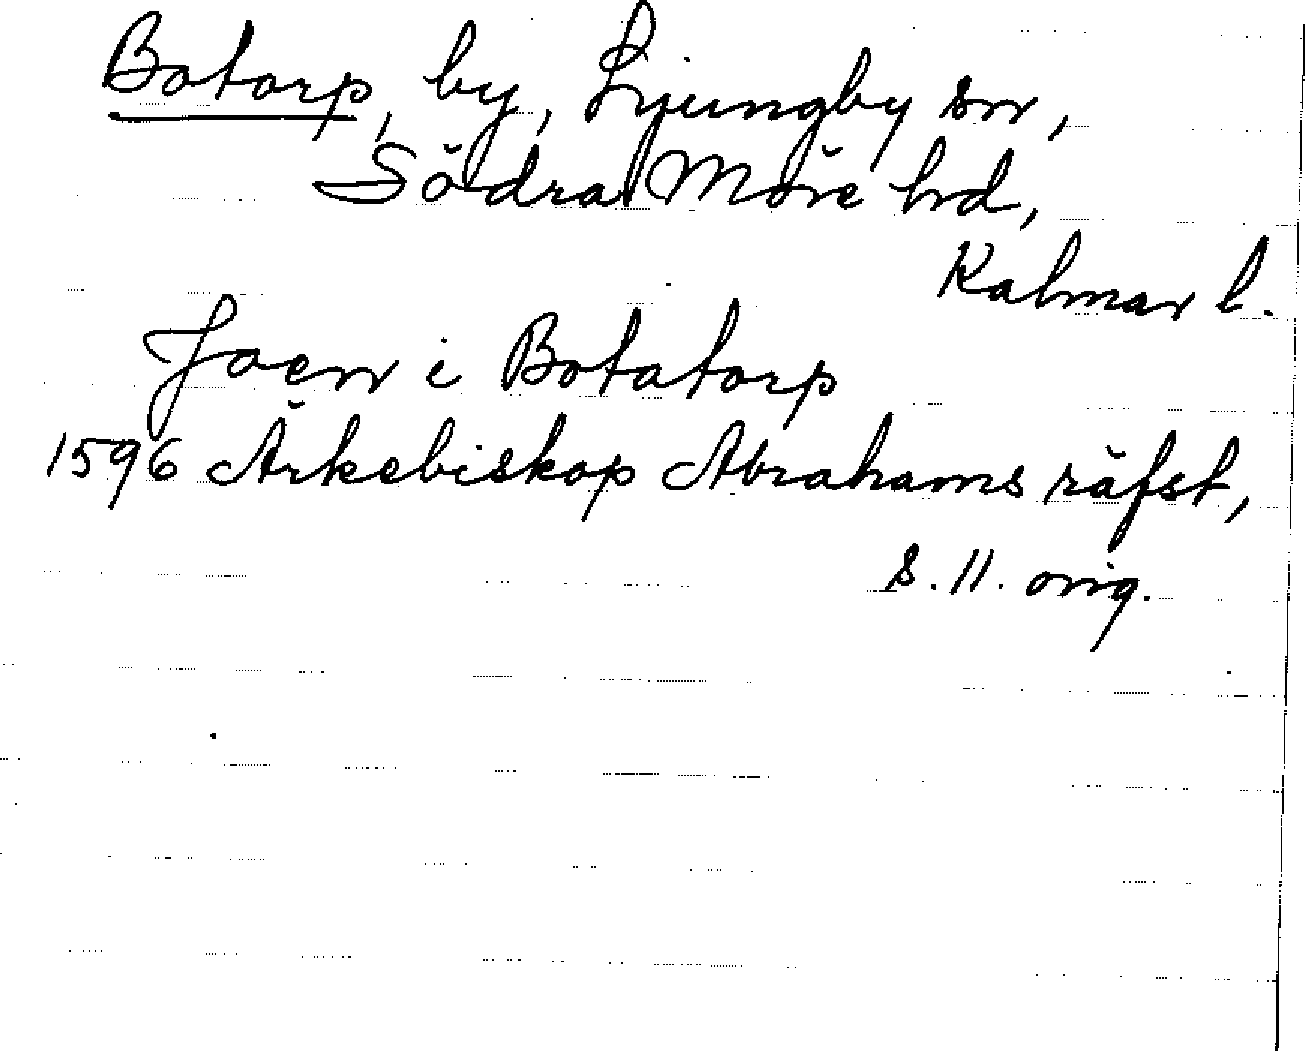 Botorp, by, Ljungby sn,
Södra Möre hd,
Kalmar l.
Joen i Botatorp
1596 Ärkebiskop Abrahams räfst,
s. 11. orig.